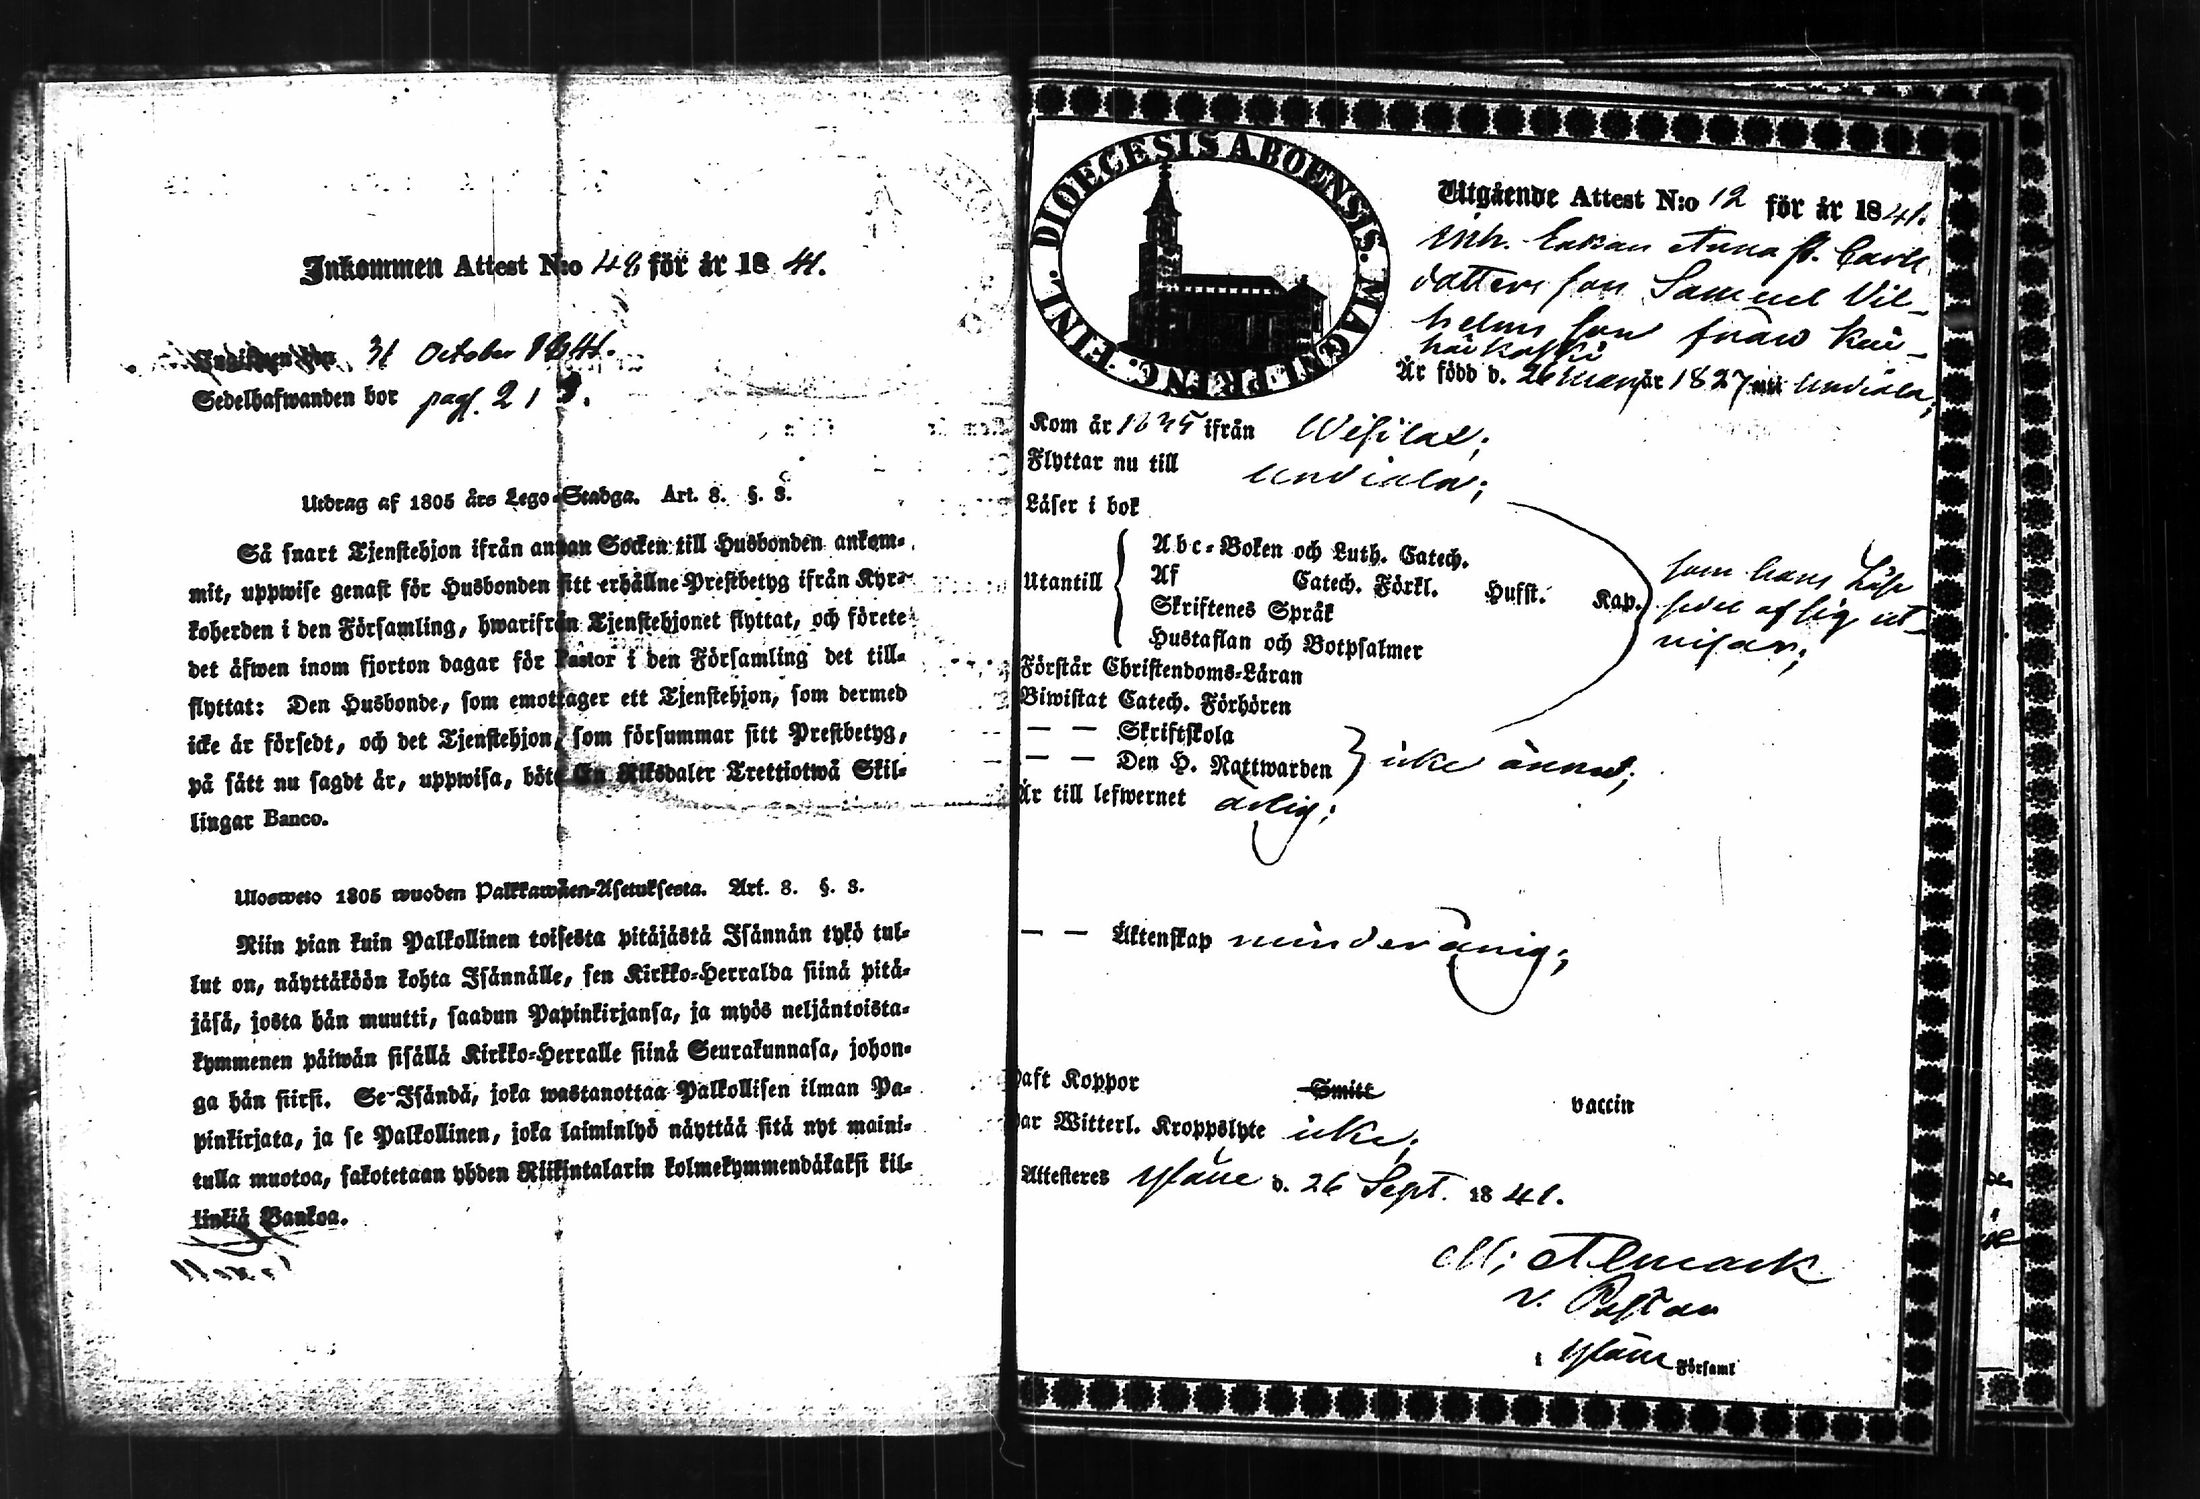 Inkommen Attest N:o 48 för år 1841.
31 October 1841.
Sedelhafwanden bor pag. 213.
Utdrag af 1805 års Lego-Stadga. Art. 8. §. 3.
Så snart Tjenstehjon ifrån annan Socken till Husbonden ankom-
mit, uppwise genast för Husbonden sitt erhållne Prestbetyg ifrån Kyr-
koherden i den Församling, hwarifrån Tjenstehjonet flyttat, och förete
det äfwen inom fjorton dagar för Pastor i den Församling det till-
flyttat: Den Husbonde, som emottager ett Tjenstehjon, som dermed
icke är försedt, och det Tjenstehjon, som försummar sitt Prestbetyg,
på sätt nu sagdt är, uppwisa, böte En Riksdaler Trettiotwå Skil-
lingar Banco.
Ulosweto 1805 wuoden Palkkawäen-Asetuksesta. Art. 8. §. 3.
Niin pian kuin Palkollinen toisesta pitäjästä Isännän tykö tul-
lut on, näyttäköön kohta Isännälle, sen Kirkko-Herralda siinä pitä-
jäsä, josta hän muutti, saadun Papinkirjansa, ja myös neljäntoista-
kymmenen päiwän sisällä Kirkko-Herralle siinä Seurakunnasa, johon-
ga hän siirsi. Se Isändä, joka wastanottaa Palkollisen ilman Pa-
pinkirjata, ja se Palkollinen, joka laiminlyö näyttää sitä nyt maini-
tulla muotoa, sakotetaan yhden Riikintalarin kolmekymmendäkaksi kil-
linkiä Bankoa.
DIOECESIS ABOENSIS. MAGNI PRINC: FINL.
Utgående Attest N:o 12 för år 1841.
Inh. Enkan Anna St. Carls
dotters son Samuel Vil-
helms son från Kui-
Är född d. 26 år 1827
Kom år 1835 ifrån Wesilax;
Flyttar nu till Undiala;
Läser i bok
Utantill
Abc-Boken och Luth. Catech.
Af Catech. Förkl. Hufst. Kap.
Skriftenes Språk
Hustaflan och Botpsalmer
som hans Läse
sedel af sig ut-
visar;
Förstår Christendoms-Läran
Biwistat Catech. Förhören
— — Skriftskola
— — Den H. Nattwarden
icke ännu;
Är till lefwernet ärlig;
— — Äktenskap minderårig;
Haft Koppor Smitt vaccin
Har Witterl. Kroppslyte icke;
Attesteres Yläne d. 26 Sept. 1841.
M; Almark
v. Pastor
i Yläne Församl